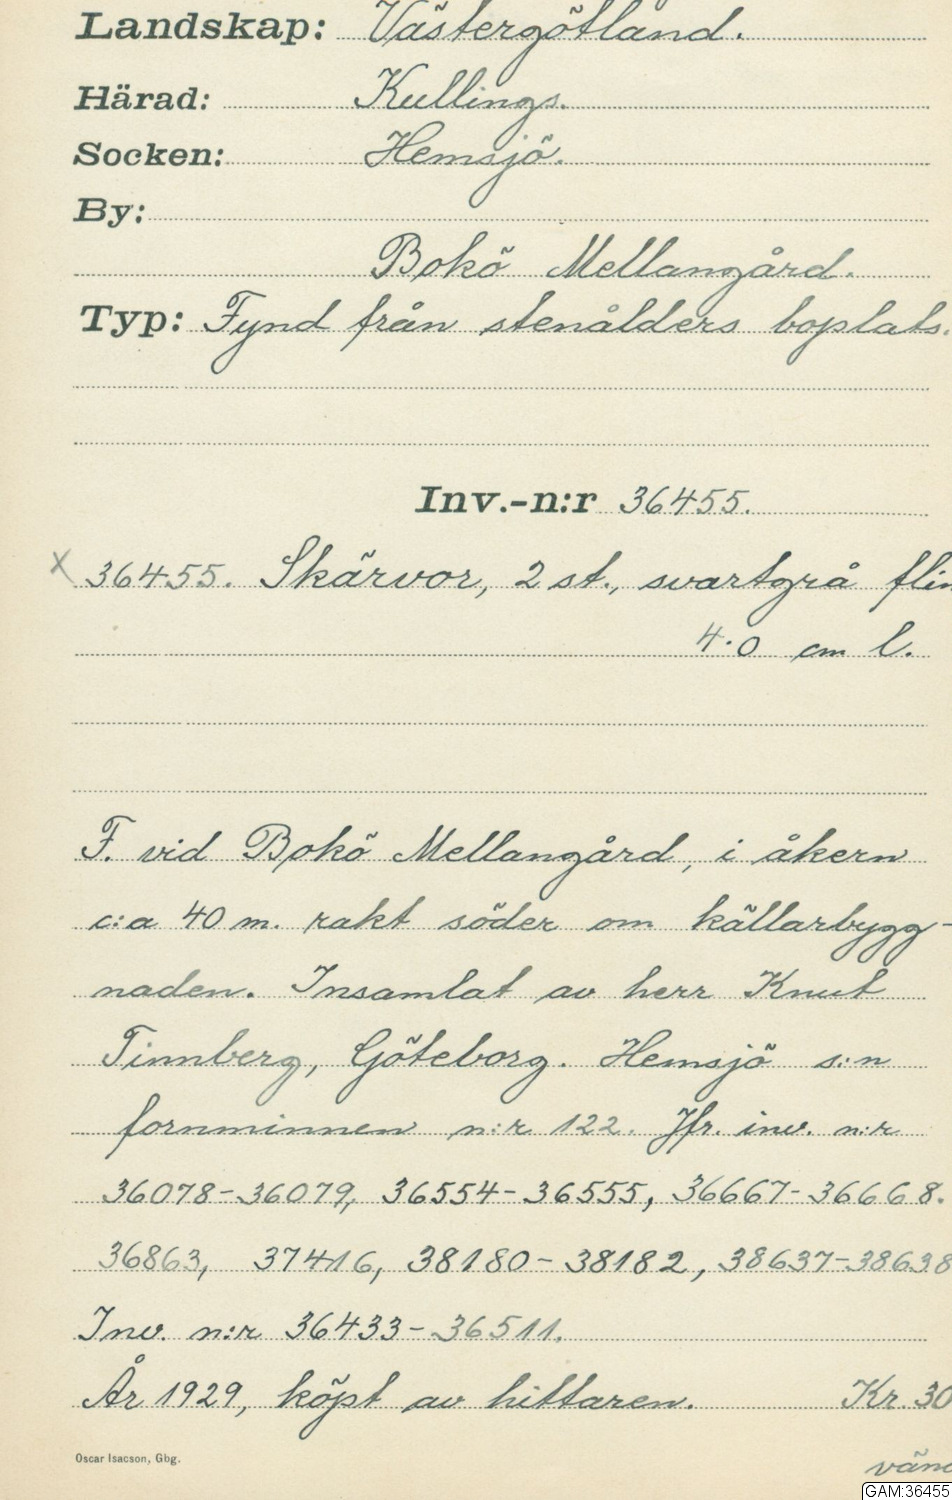 Landskap: Västergötland.
Härad: Kullings.
Socken: Hemsjö.
By:
Bokö Mellangård.
Typ: Fynd från stenålders boplats.
Inv.-n:r 36455.
x 36455. Skärvor, 2 st., svartgrå flin
4.0 cm l.
F. vid Bokö Mellangård, i åkern
c:a 40 m. rakt söder om källarbygg-
naden. Insamlat av herr Knut
Tinnberg, Göteborg. Hemsjö s:n
fornminnen n:r 122. Jfr. inv. n:r
36078-36079, 36554-36555, 36667-36668.
36863, 37416, 38180-38182, 38637-38638
Inv. n:r 36433-36511.
År 1929, köpt av hittaren. Kr. 30
Oscar Isacson, Gbg.
vänd
GAM:36455